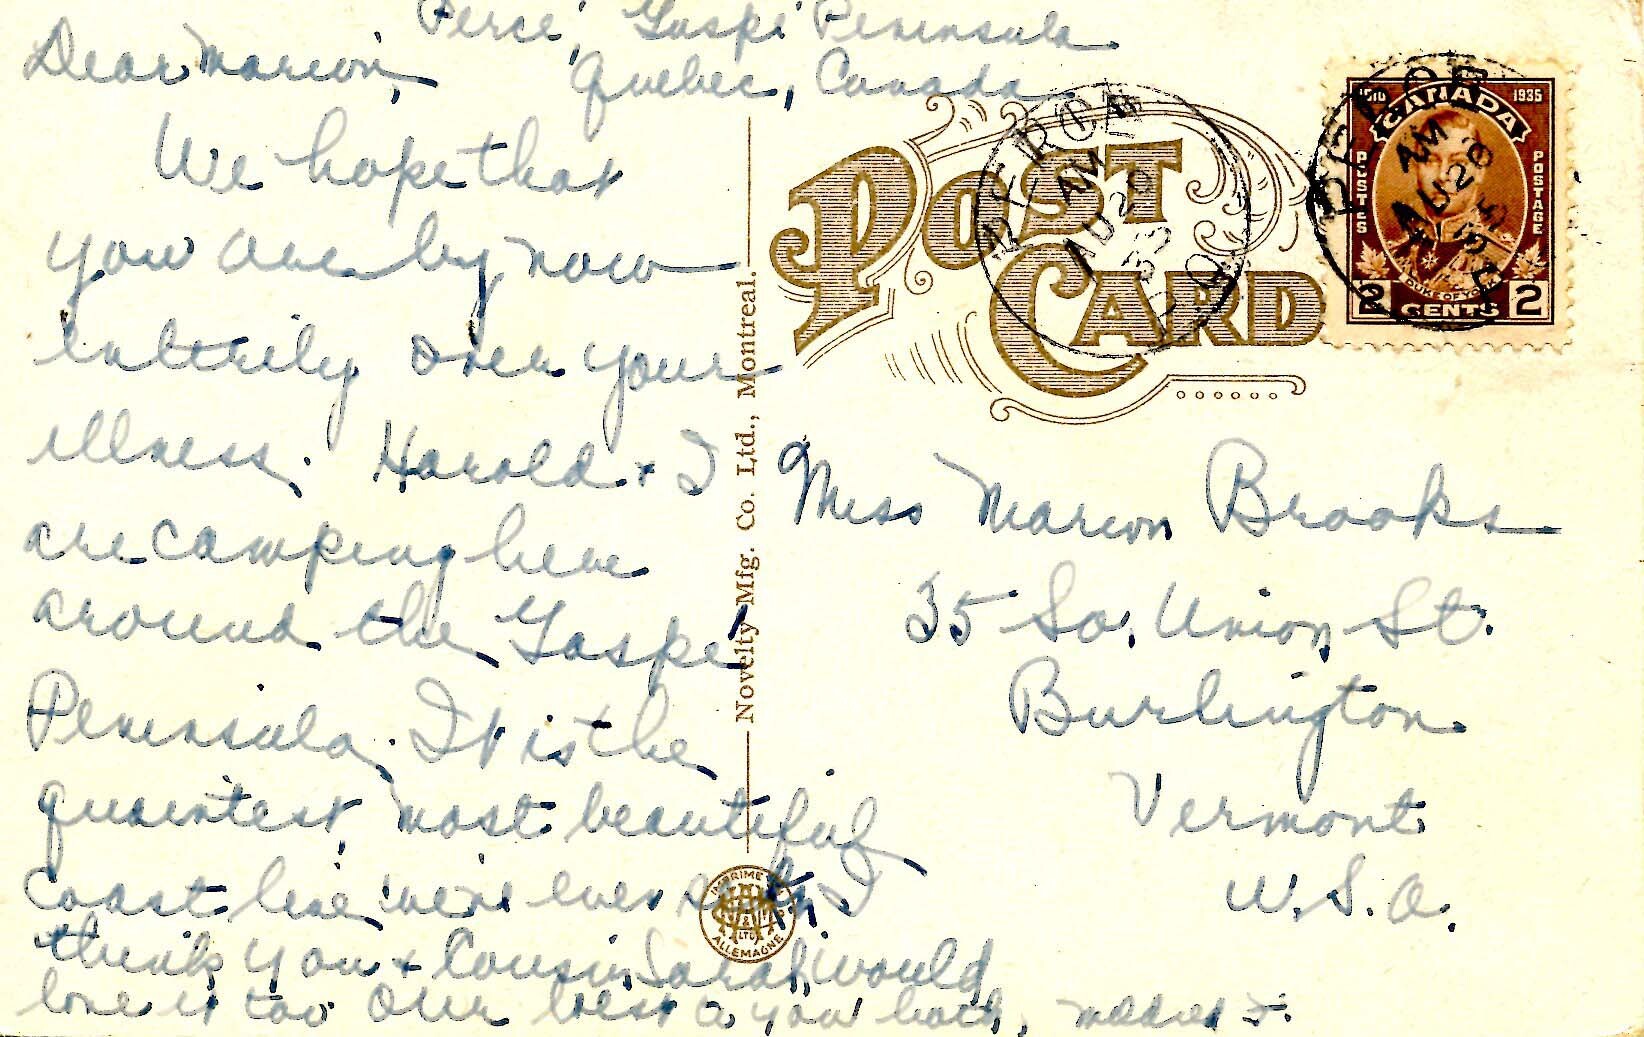 Percé, Gaspé Peninsula
Quebec, Canada
Dear Marion,
We hope that
you are by now
entirely over your
illness. Harold + I
are camping here
around the Gaspé
Peninsula. It is the
quaintest, most beautiful
coast line we've ever seen. I
think you + Cousin Sarah would
love it too. Our best to you both, Mildred F.
Novelty Mfg. Co. Ltd., Montreal.
POST
CARD
AM
AU 20
CANADA
1910 1935
POSTES POSTAGE
DUKE OF YORK
2 CENTS 2
PERCE
AM
AU 20
35
Miss Marion Brooks
35 So. Union St.
Burlington
Vermont
U.S.A.
IMPRIME EN
LTD
ALLEMAGNE